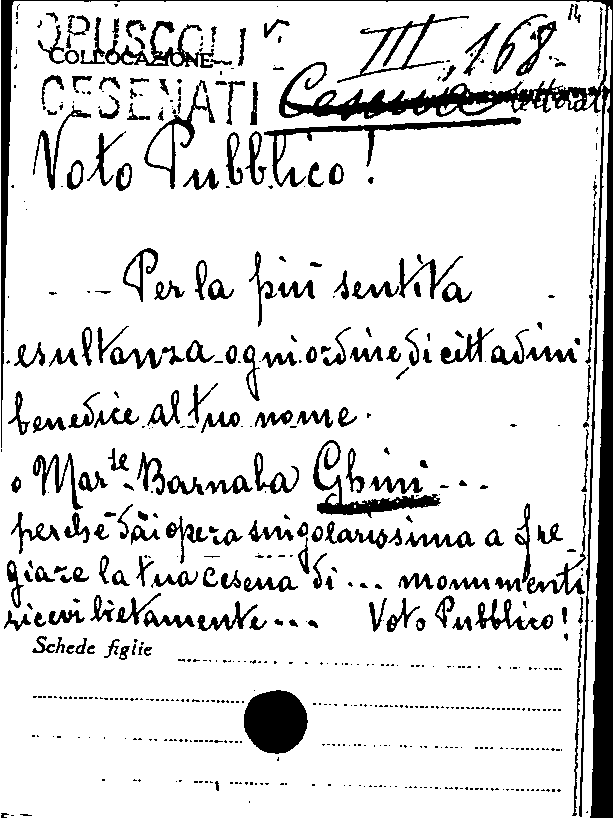 OPUSCOLI V III, 168
COLLOCAZIONE
CESENATI Cesena
Voto Pubblico!
Per la più sentita
esultanza ogni ordine di cittadini
benedice al tuo nome.
o Mar.te Barnaba Ghini ...
perchè dài opera singolarissima a fre-
giare la tua Cesena di ... monumenti
ricevi lietamente ... Voto Pubblico!
Schede figlie